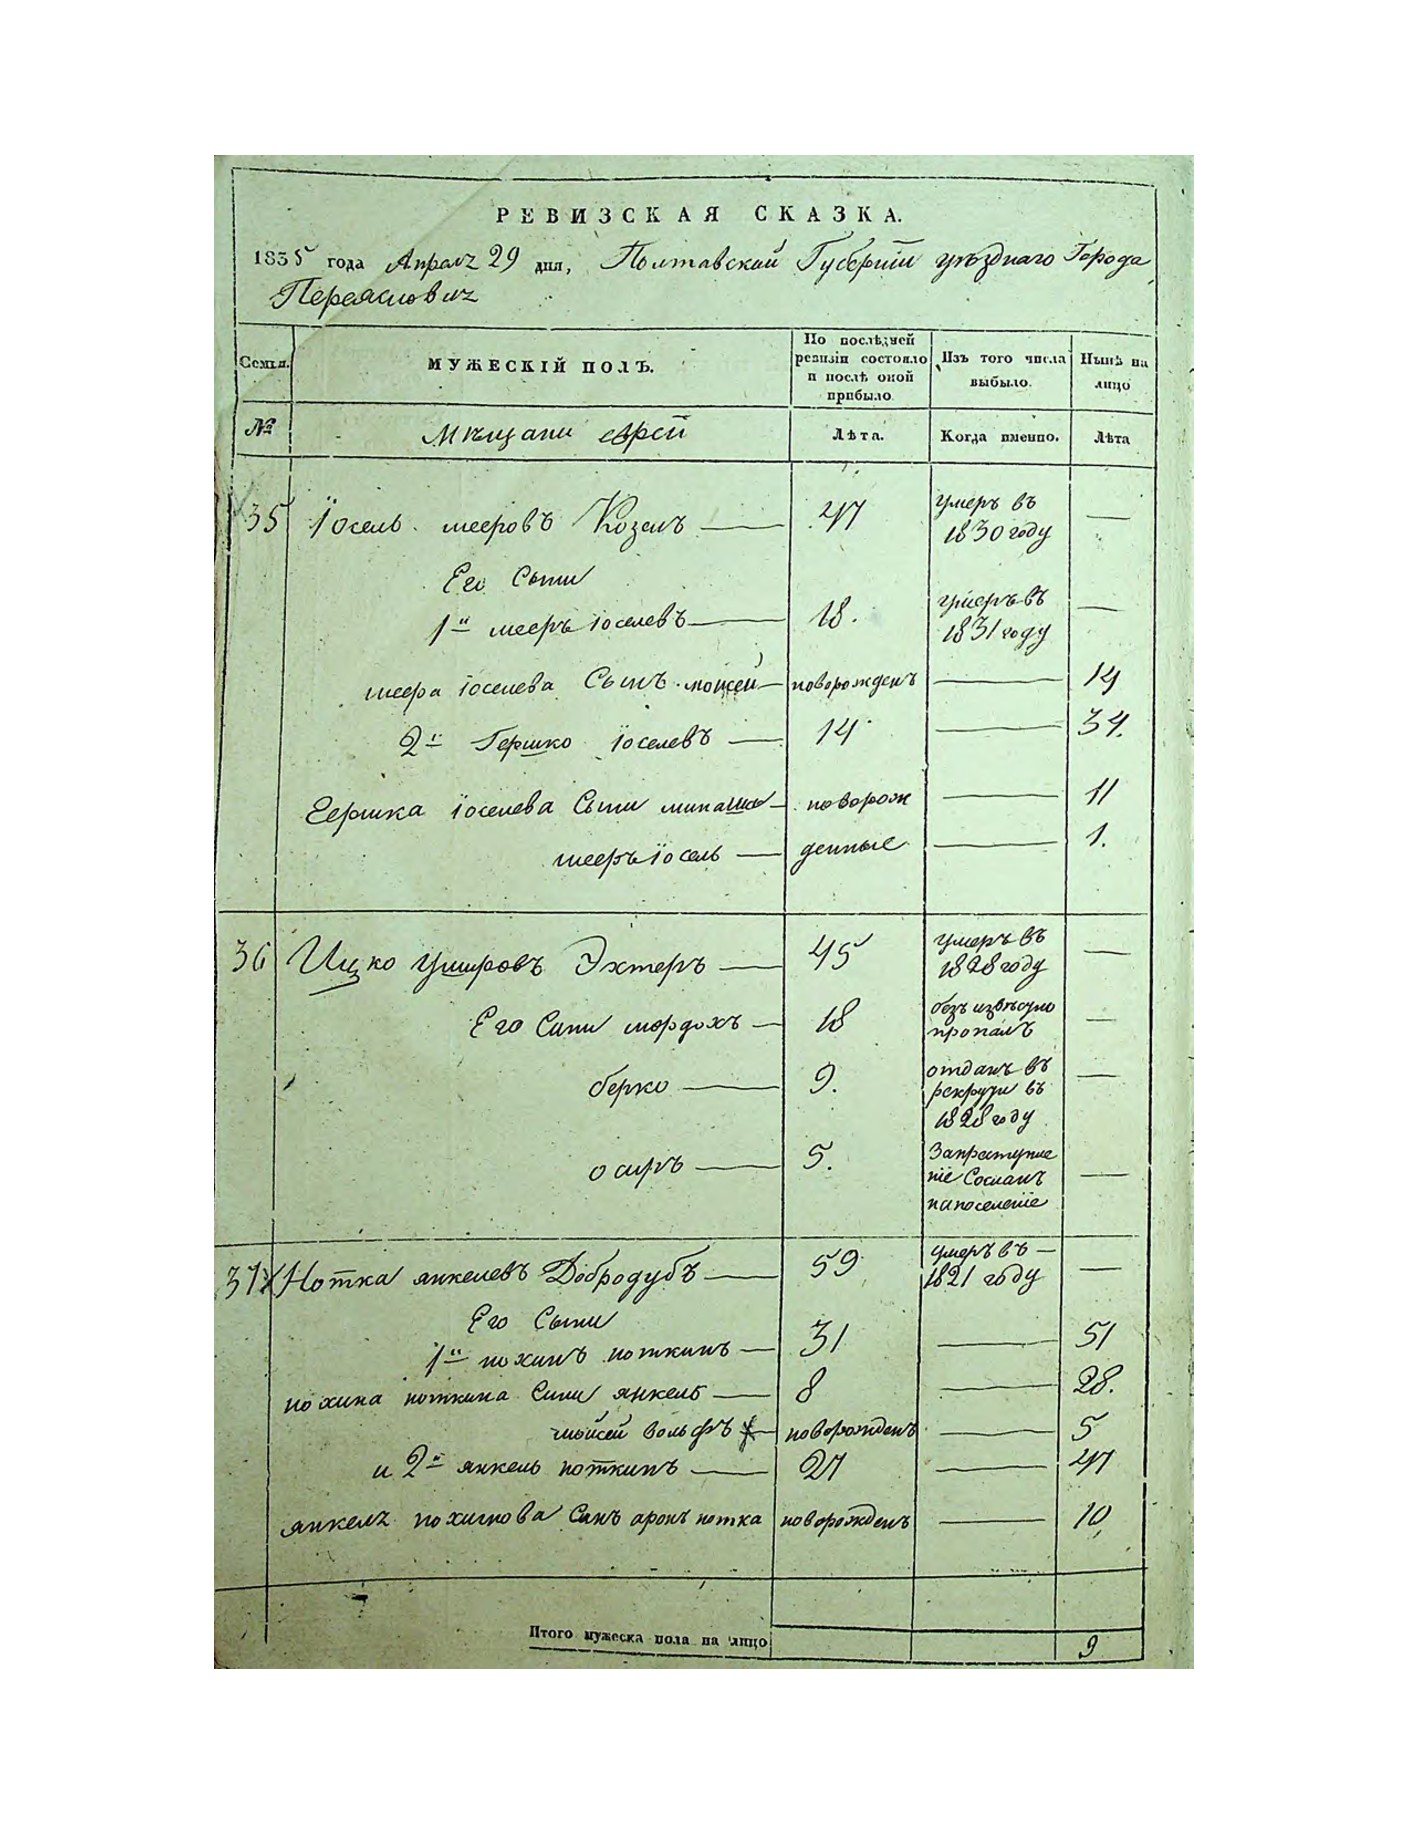 РЕВИЗСКАЯ СКАЗКА.
1835 года Апреля 29 дня, Полтавской Губернїи уѣзднаго Города
Переяславля
Семья.
МУЖЕСКІЙ ПОЛЪ.
По послѣдней ревизіи состояло и послѣ оной прибыло.
Изъ того числа выбыло.
Нынѣ на лицо
№
Мѣщани еврей
Лѣта.
Когда именно.
Лѣта
35 Їосель мееровъ Козелъ 47 умеръ въ 1830 году —
Его Сыни
1й мееръ їоселевъ 18. умеръ въ 1831 году —
меера їоселева Сынъ мойсей новорожденъ — 14
2й Гершко їоселевъ 14 — 34.
Гершка їоселева Сыни минашко новорож — 11
мееръ їосель денные — 1.
36 Ицко ушеровъ Эхтеръ 45 умеръ въ 1828 году —
Его Сини мордохъ 18 безъ извѣсно пропалъ —
берко 9. отданъ въ рекрути въ 1828 году —
ошеръ 5. Запреступленїе Сосланъ напоселенїе —
37 Нотка янкелевъ Добродубъ 59 умеръ въ — 1821 году —
Его Сыни
1й нохимъ ноткинъ 31 — 51
нохима ноткина Сини янкель 8 — 28.
мойсей вольфъ новорожденъ — 5
и 2й янкель ноткинъ 27 — 47
янкеля нохимова Синъ аронъ нотка новорожденъ — 10
Итого мужеска пола на лицо 9